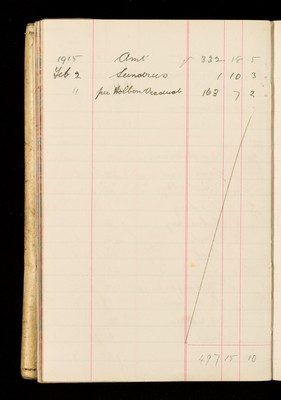 1915 Amt 332 18 5
Feb 2 Sundries 1 10 3
11 per 163 7 2
497 15 10